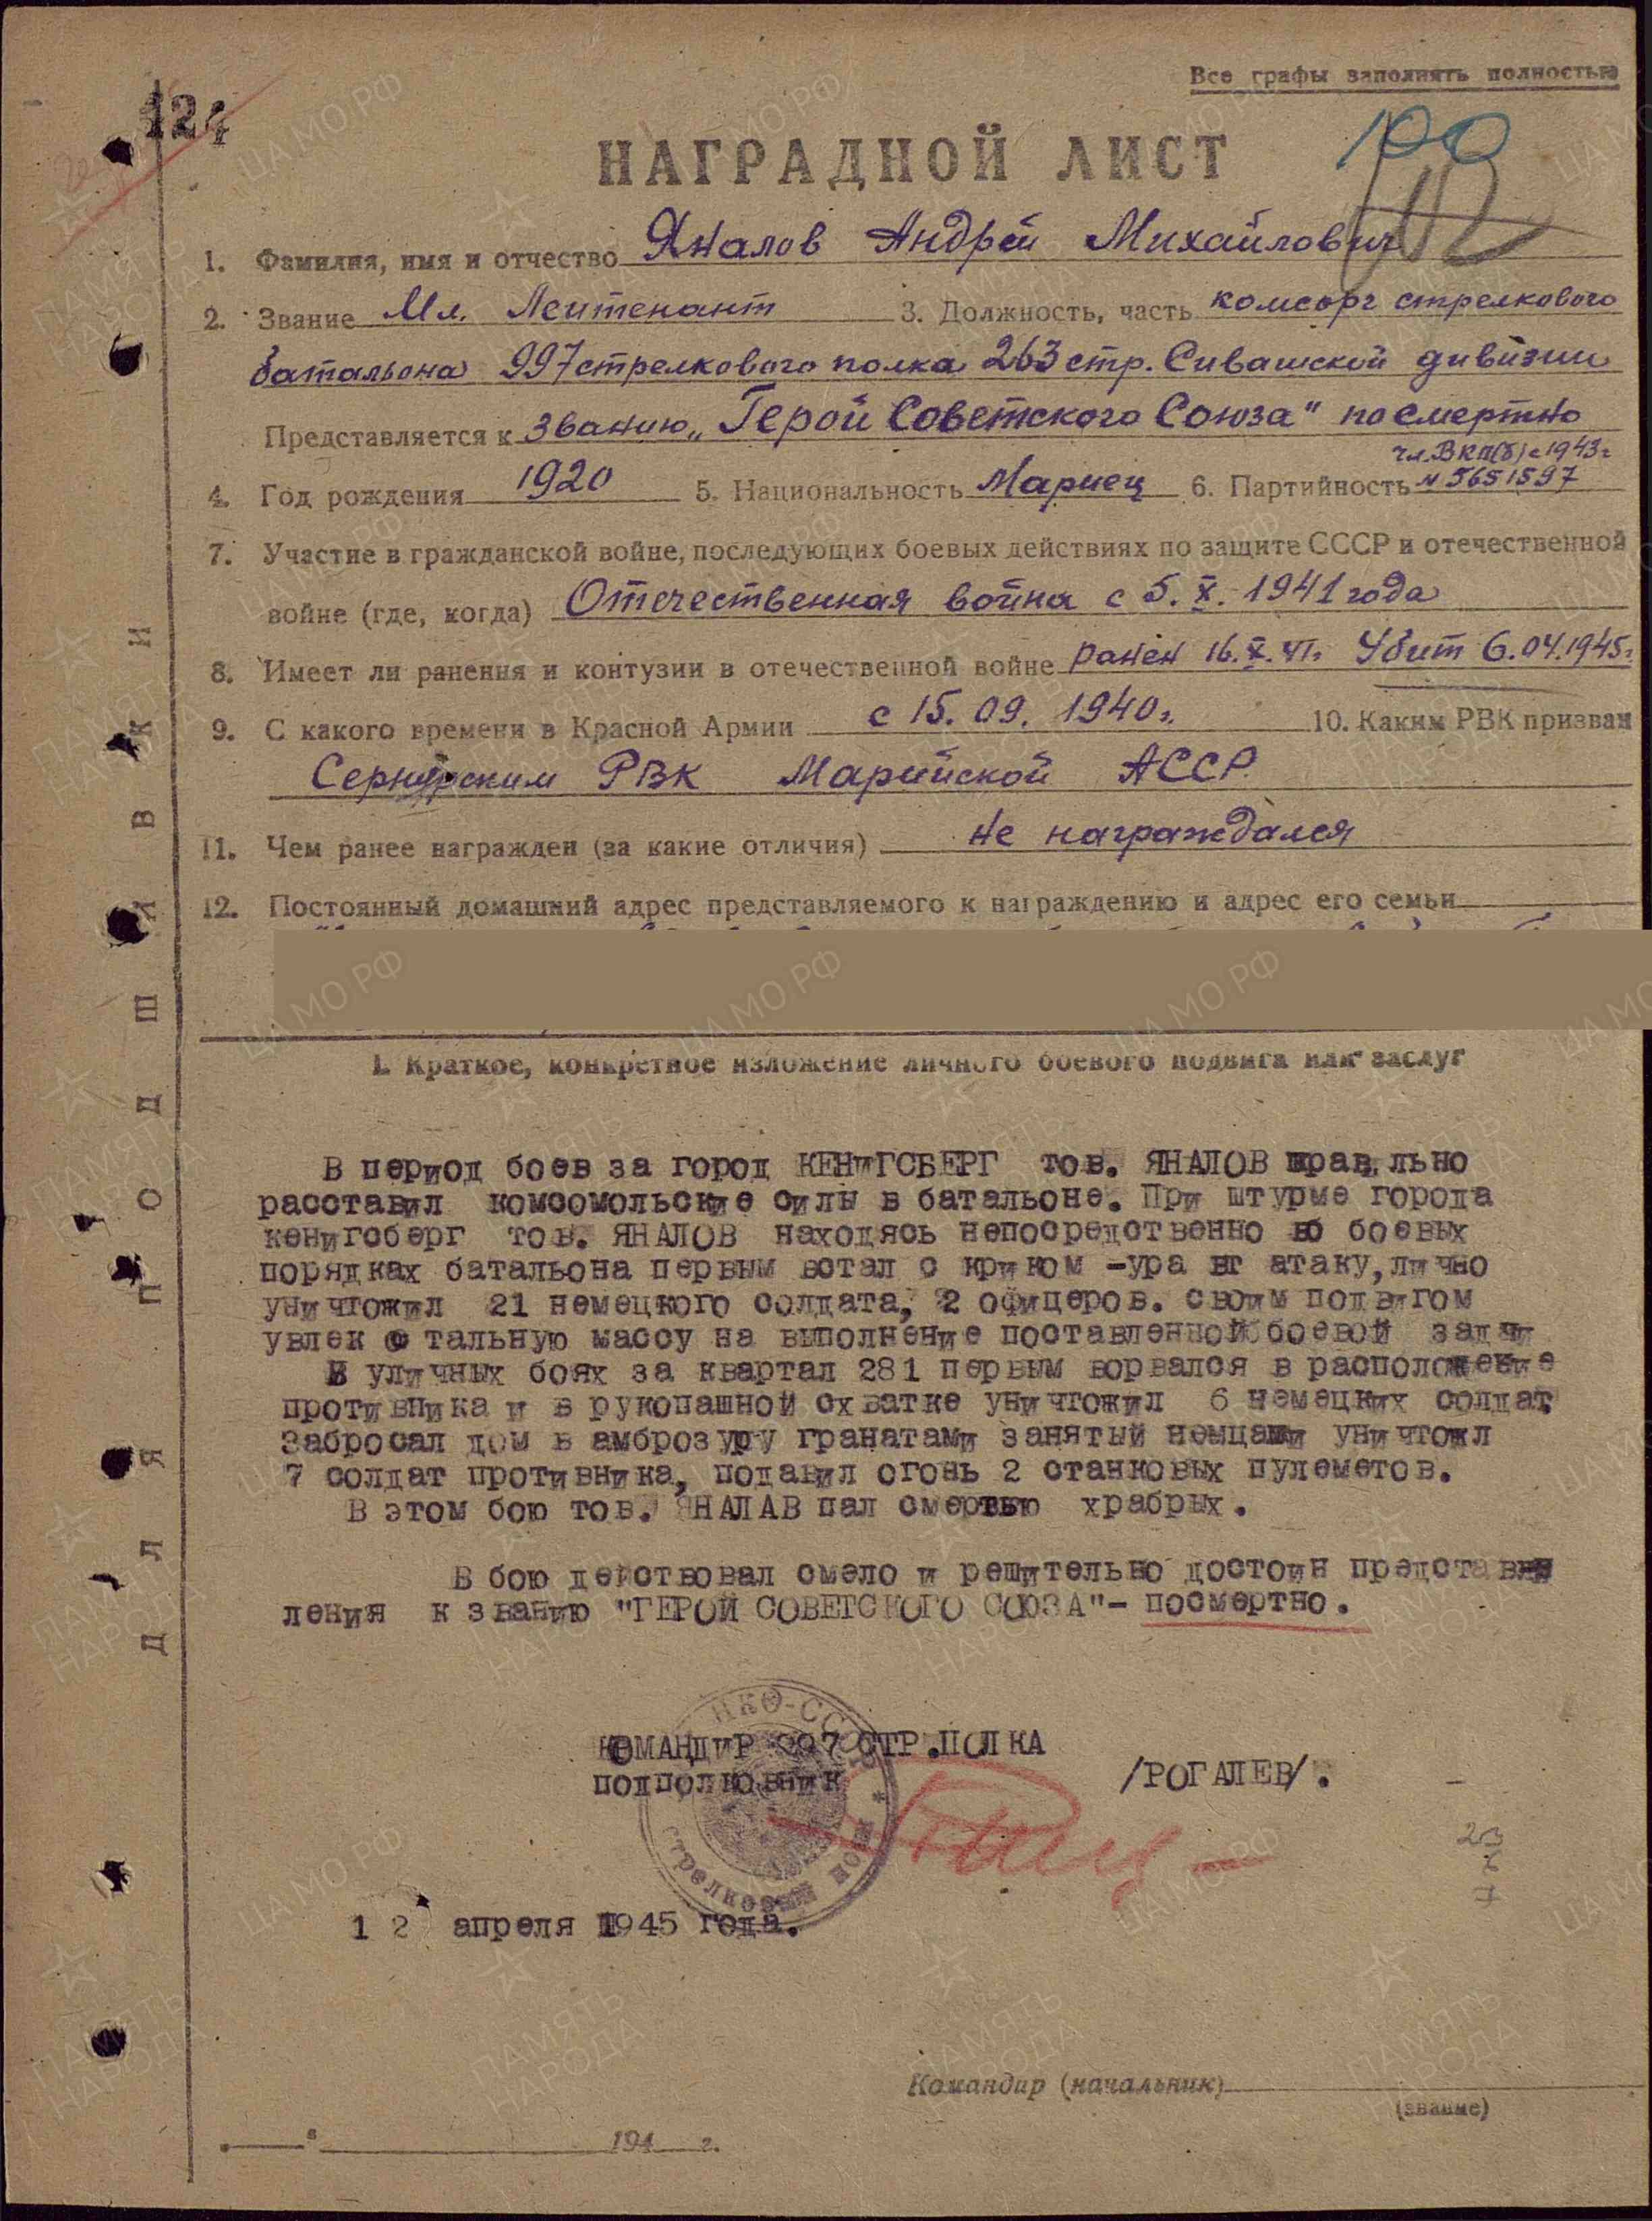 Все графы заполнять полностью
124
100
НАГРАДНОЙ ЛИСТ
1. Фамилия, имя и отчество Яналов Андрей Михайлович
2. Звание Мл. Лейтенант 3. Должность, часть комсорг стрелкового
батальона 997 стрелкового полка 263 стр. Сивашской дивизии
Представляется к званию „Герой Советского Союза" посмертно
чл. ВКП(б) с 1943 г
4. Год рождения 1920 5. Национальность Мариец 6. Партийность № 5651597
7. Участие в гражданской войне, последующих боевых действиях по защите СССР и отечественной
войне (где, когда) Отечественная война с 5. X. 1941 года
8. Имеет ли ранения и контузии в отечественной войне ранен 16. X. 41 г. Убит 6.04.1945 г.
9. С какого времени в Красной Армии с 15. 09. 1940 г. 10. Каким РВК призван
Сернурским РВК Марийской АССР.
11. Чем ранее награжден (за какие отличия) не награждался
12. Постоянный домашний адрес представляемого к награждению и адрес его семьи
I. Краткое, конкретное изложение личного боевого подвига или заслуг
В период боев за город КЕНИГСБЕРГ тов. ЯНАЛОВ правильно
расставил комсомольские силы в батальоне. При штурме города
кенигсберг тов. ЯНАЛОВ находясь непосредственно во боевых
порядках батальона первым встал с криком -ура в атаку, лично
уничтожил 21 немецкого солдата, 2 офицеров. своим подвигом
увлек остальную массу на выполнение поставленной боевой задчи
В уличных боях за квартал 281 первым ворвался в расположение
противника и в рукопашной схватке уничтожил 6 немецких солдат,
Забросал дом в амброзуру гранатами занятый немцами уничтожл
7 солдат противника, подавил огонь 2 станковых пулеметов.
В этом бою тов. ЯНАЛАВ пал смертью храбрых.
В бою действовал смело и решительно достоин представ
ления к званию "ГЕРОЙ СОВЕТСКОГО СОЮЗА"- посмертно.
КОМАНДИР 997 СТР.ПОЛКА
подполковник /РОГАЛЕВ/.
НКО-СССР
стрелковый полк
23
6
7
12 апреля 1945 года.
Командир (начальник)
(звание)
„ " 194 г.
ДЛЯ ПОДШИВКИ
ПАМЯТЬ НАРОДА
ЦА МО РФ